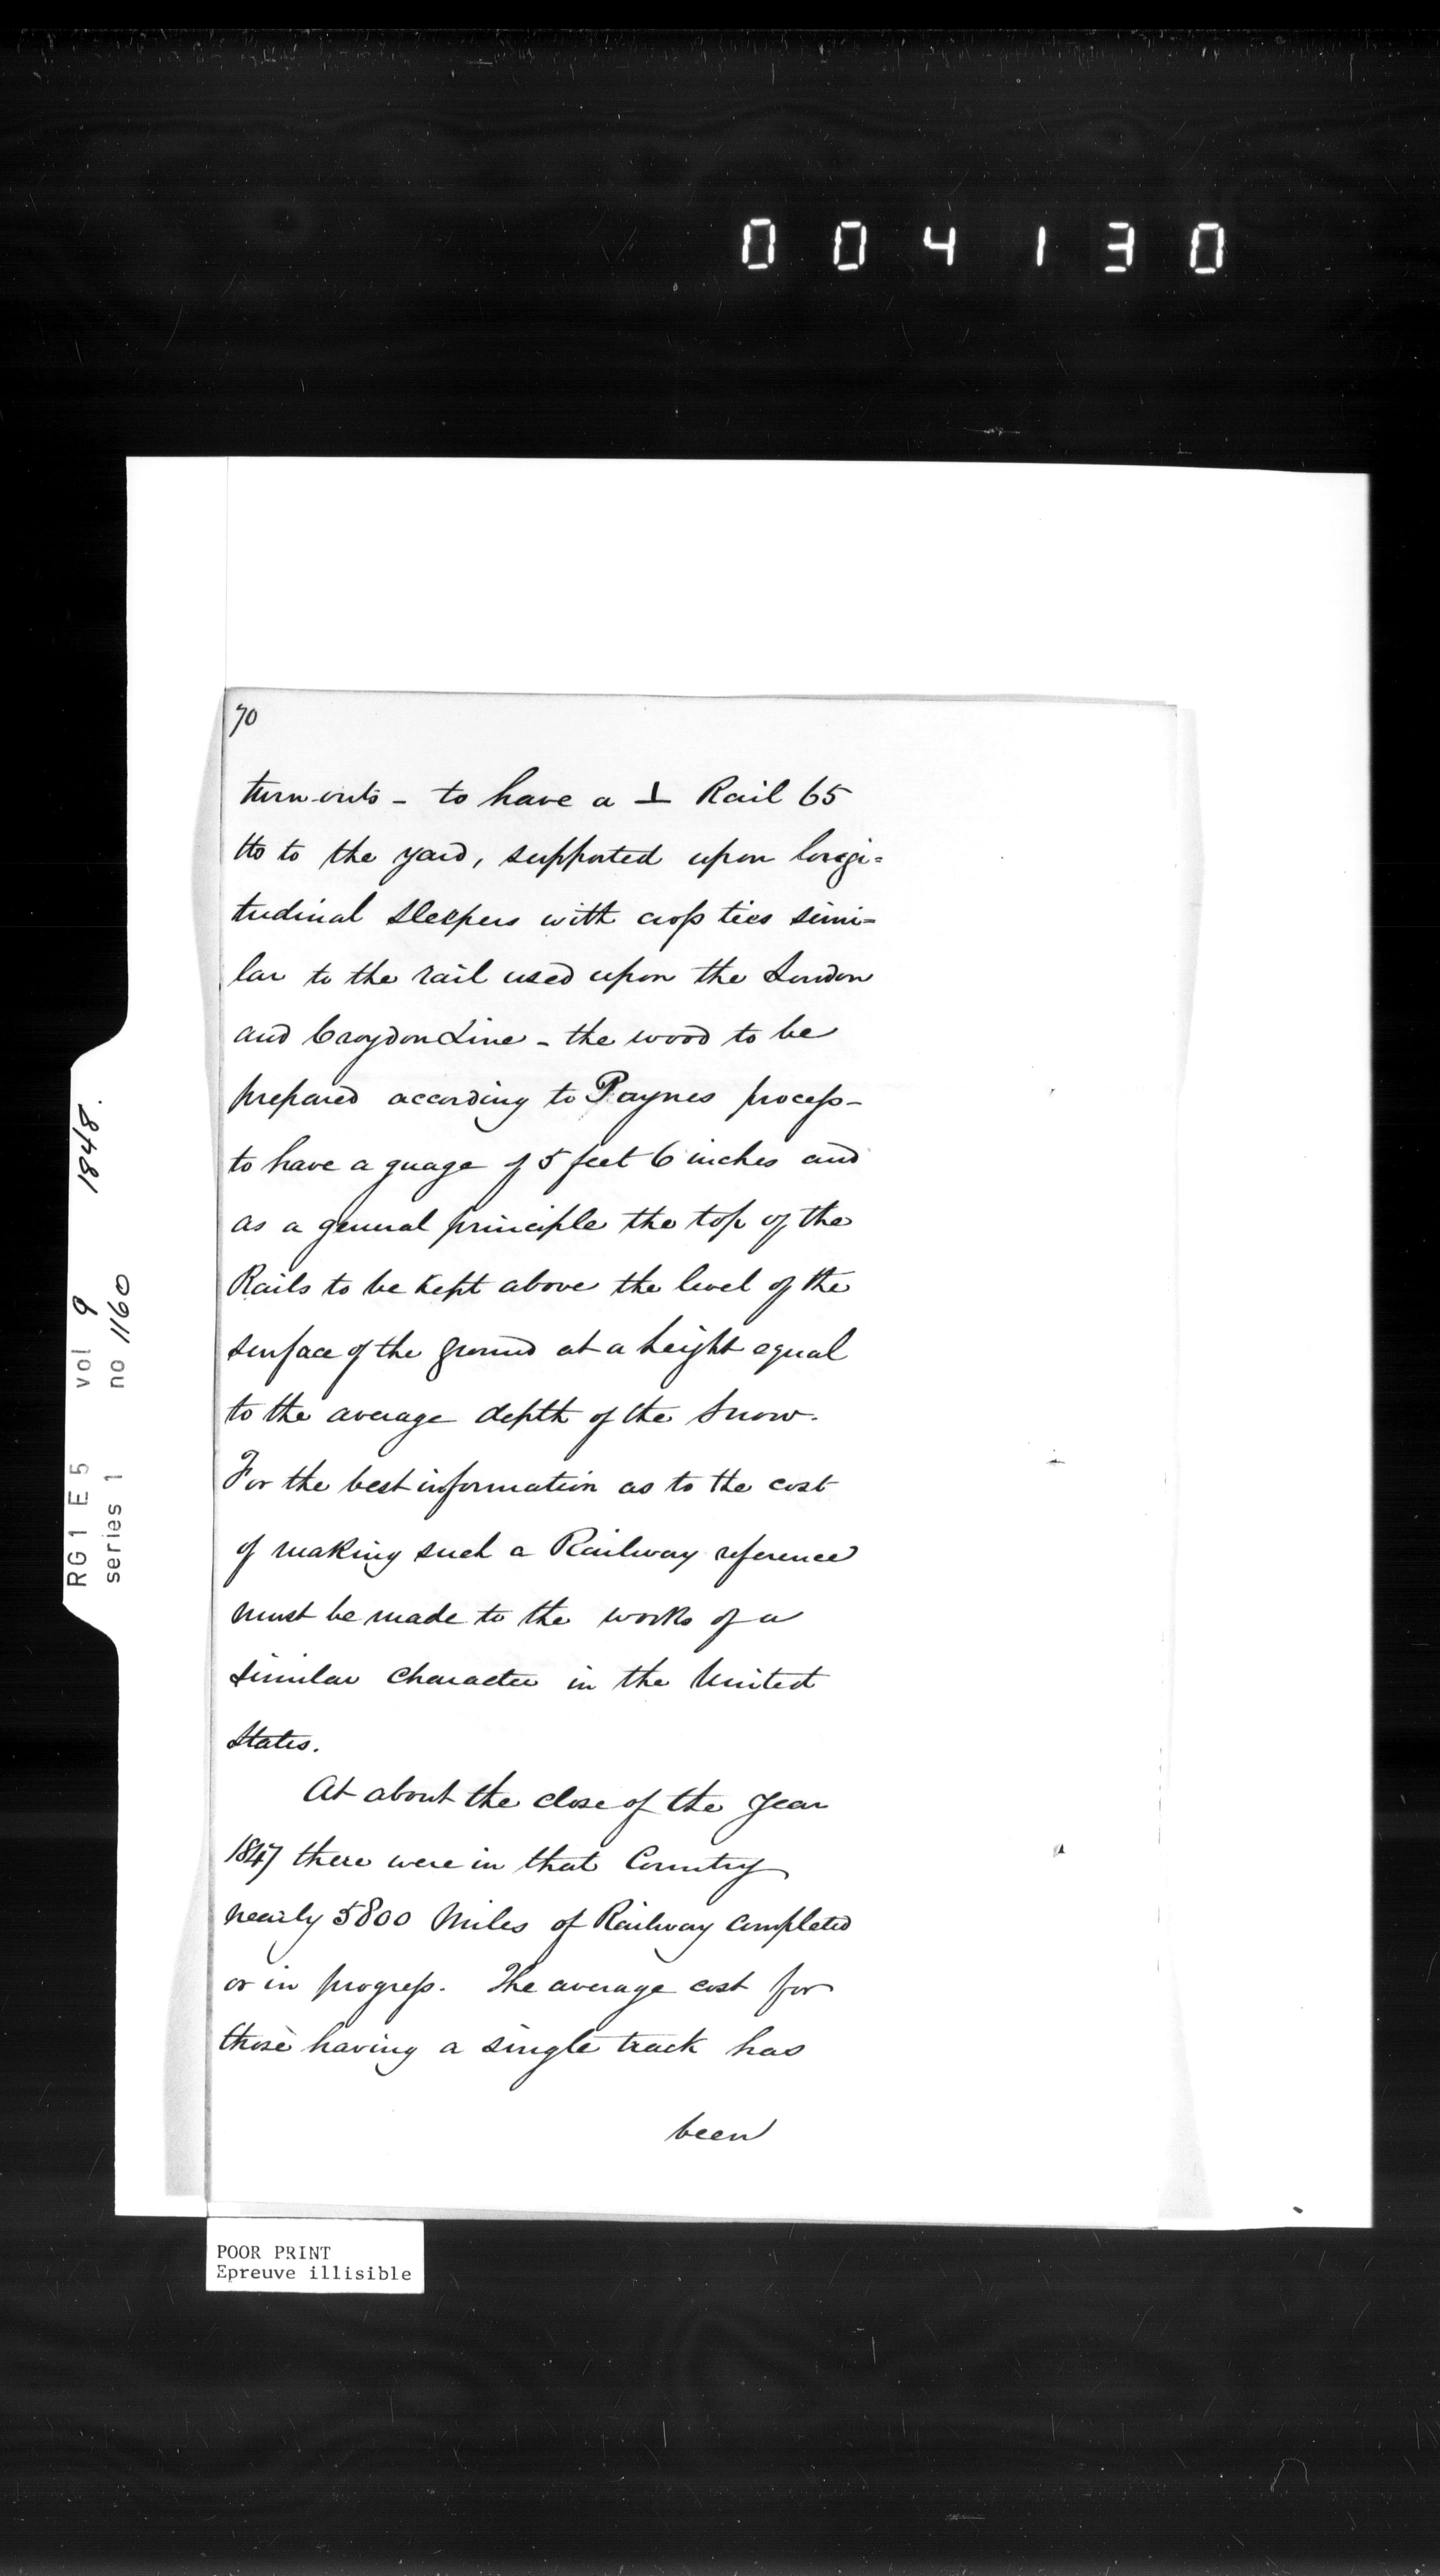 004130
70
turn-outs - to have a ⊥ Rail 65
lbs to the yard, supported upon longi=
tudinal sleepers with cross ties simi=
lar to the rail used upon the London
and Croydon Line - the wood to be
prepared according to Paynes process -
to have a guage of 5 feet 6 inches and
as a general principle the top of the
Rails to be kept above the level of the
surface of the ground at a height equal
to the average depth of the Snow.
For the best information as to the cost
of making such a Railway reference
must be made to the works of a
similar character in the United
States.
At about the close of the year
1847 there were in that Country
nearly 5800 Miles of Railway completed
or in progress. The average cost for
those having a single track has
been
RG1 E5 vol 9 1848.
series 1 no 1160
POOR PRINT
Epreuve illisible